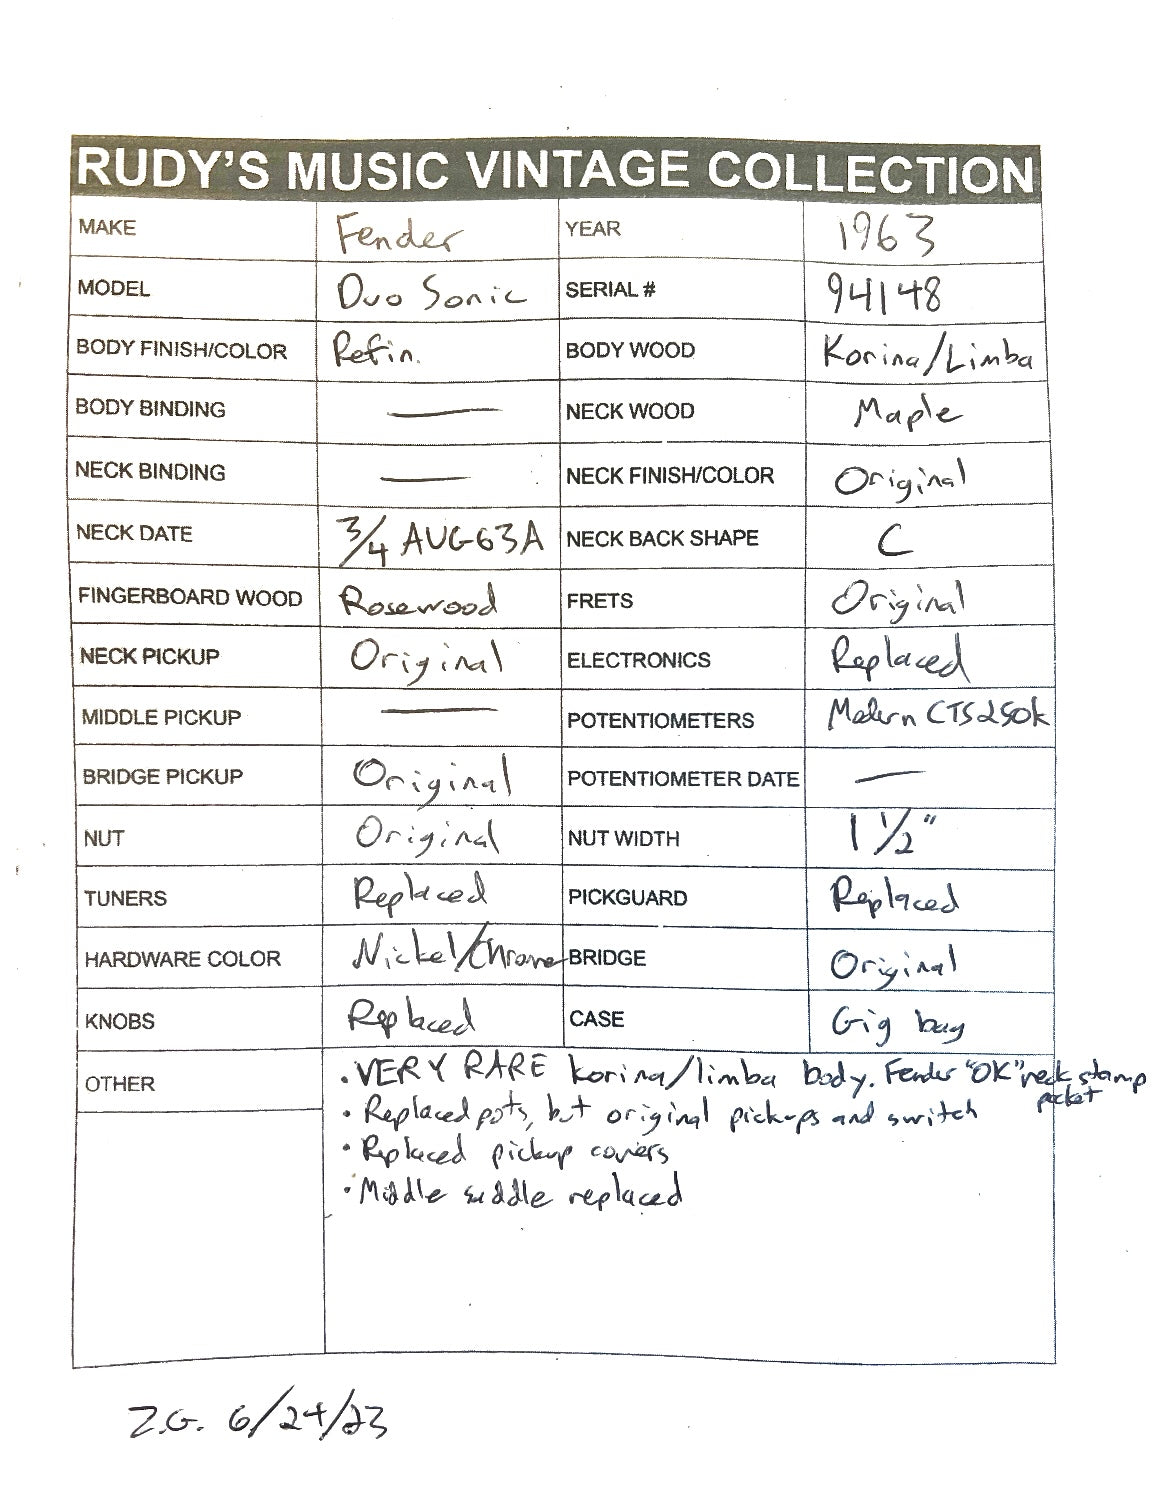 RUDY'S MUSIC VINTAGE COLLECTION
MAKE Fender YEAR 1963
MODEL Duo Sonic SERIAL # 94148
BODY FINISH/COLOR Refin. BODY WOOD Korina/Limba
BODY BINDING — NECK WOOD Maple
NECK BINDING — NECK FINISH/COLOR Original
NECK DATE 3/4 AUG63A NECK BACK SHAPE C
FINGERBOARD WOOD Rosewood FRETS Original
NECK PICKUP Original ELECTRONICS Replaced
MIDDLE PICKUP — POTENTIOMETERS Modern CTS 250k
BRIDGE PICKUP Original POTENTIOMETER DATE —
NUT Original NUT WIDTH 1 1/2"
TUNERS Replaced PICKGUARD Replaced
HARDWARE COLOR Nickel/Chrome BRIDGE Original
KNOBS Replaced CASE Gig bag
OTHER • VERY RARE korina/limba body. Fender "OK" neck stamp
pocket
• Replaced pots, but original pickups and switch
• Replaced pickup covers
• Middle saddle replaced
Z.G. 6/24/23